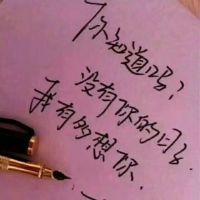 你知道吗？
没有你的日子
我有多想你.